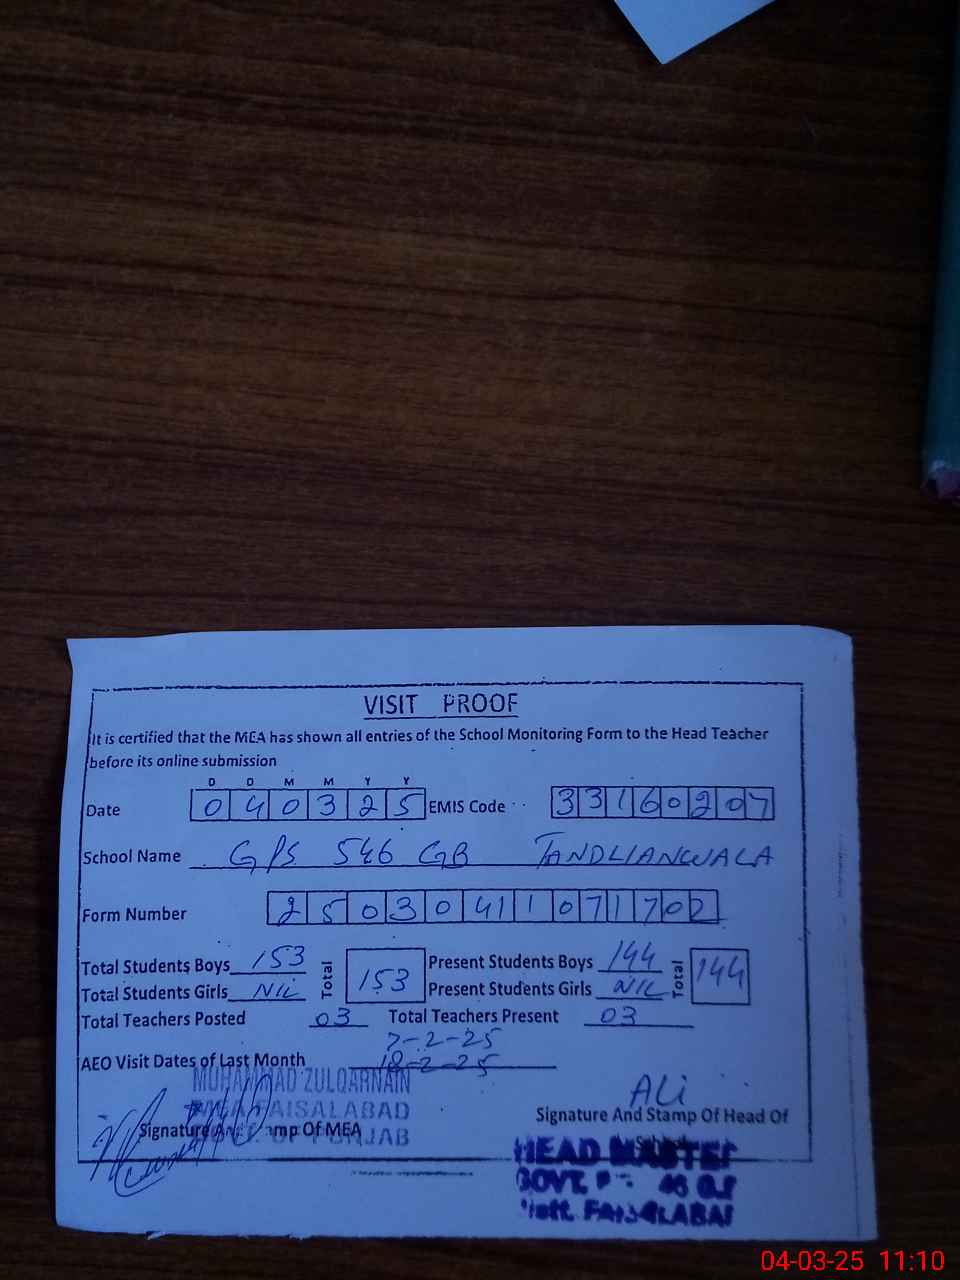 VISIT PROOF
It is certified that the MEA has shown all entries of the School Monitoring Form to the Head Teacher
before its online submission
D D M M Y Y
Date 040325 EMIS Code 33160207
School Name GPS 546 GB TANDLIANWALA
Form Number 25030411071702
Total Students Boys 153 Total 153 Present Students Boys 144 Total 144
Total Students Girls NIL Present Students Girls NIL
Total Teachers Posted 03 Total Teachers Present 03
7-2-25
AEO Visit Dates of Last Month 18-2-25
MUHAMMAD ZULQARNAIN
MEA FAISALABAD
GOVT. OF PUNJAB
Signature And Stamp Of MEA
ALi
Signature And Stamp Of Head Of
HEAD MASTER
GOVT. 46 G.B
FAISALABAD
04-03-25 11:10